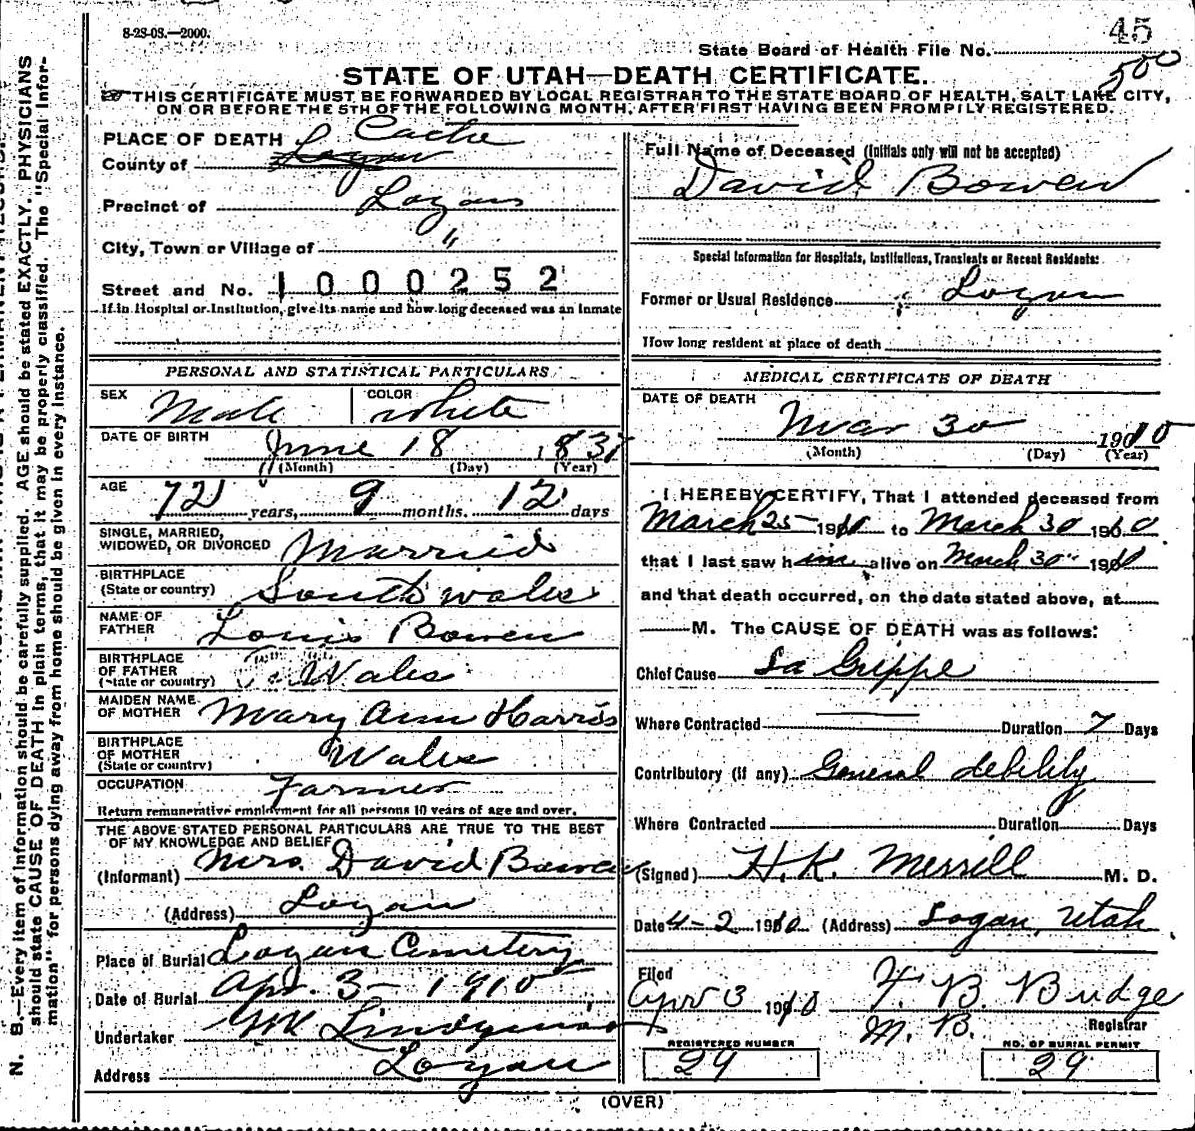 8-28-08.—2000.
45
State Board of Health File No.
500
STATE OF UTAH—DEATH CERTIFICATE.
THIS CERTIFICATE MUST BE FORWARDED BY LOCAL REGISTRAR TO THE STATE BOARD OF HEALTH, SALT LAKE CITY,
ON OR BEFORE THE 5TH OF THE FOLLOWING MONTH, AFTER FIRST HAVING BEEN PROMPTLY REGISTERED.
PLACE OF DEATH
County of Logan Cache
Precinct of Logan
City, Town or Village of "
Street and No. 1000252
If in Hospital or Institution, give its name and how long deceased was an Inmate
Full Name of Deceased (Initials only will not be accepted)
David Bowen
Special Information for Hospitals, Institutions, Transients or Recent Residents:
Former or Usual Residence Logan
How long resident at place of death
PERSONAL AND STATISTICAL PARTICULARS
SEX Male COLOR White
DATE OF BIRTH June 18 1837
(Month) (Day) (Year)
AGE 72 years, 9 months. 12 days
SINGLE, MARRIED,
WIDOWED, OR DIVORCED Married
BIRTHPLACE
(State or country) South Wales
NAME OF
FATHER Louis Bowen
BIRTHPLACE
OF FATHER
(State or country) Wales
MAIDEN NAME
OF MOTHER Mary Ann Harris
BIRTHPLACE
OF MOTHER
(State or country) Wales
OCCUPATION Farmer
Return remunerative employment for all persons 10 years of age and over.
THE ABOVE STATED PERSONAL PARTICULARS ARE TRUE TO THE BEST
OF MY KNOWLEDGE AND BELIEF
(Informant) Mrs. David Bowen
(Address) Logan
Place of Burial Logan Cemetery
Date of Burial Apr. 3 - 1910
Undertaker Wm Lindquist
Address Logan
MEDICAL CERTIFICATE OF DEATH
DATE OF DEATH
Mar 30 1910
(Month) (Day) (Year)
I HEREBY CERTIFY, That I attended deceased from
March 25 1910 to March 30 1910
that I last saw him alive on March 30" 1910
and that death occurred, on the date stated above, at
M. The CAUSE OF DEATH was as follows:
Chief Cause La Grippe
Where Contracted Duration 7 Days
Contributory (if any) General debility
Where Contracted Duration Days
(Signed) H. K. Merrill M. D.
Date 4-2 1910 (Address) Logan, Utah
Filed
Apr 3 1910 F. B. Budge
M. D. Registrar
REGISTERED NUMBER
29
NO. OF BURIAL PERMIT
29
(OVER)
N. B.—Every item of information should be carefully supplied. AGE should be stated EXACTLY. PHYSICIANS
should state CAUSE OF DEATH in plain terms, that it may be properly classified. The "Special Infor-
mation" for persons dying away from home should be given in every instance.